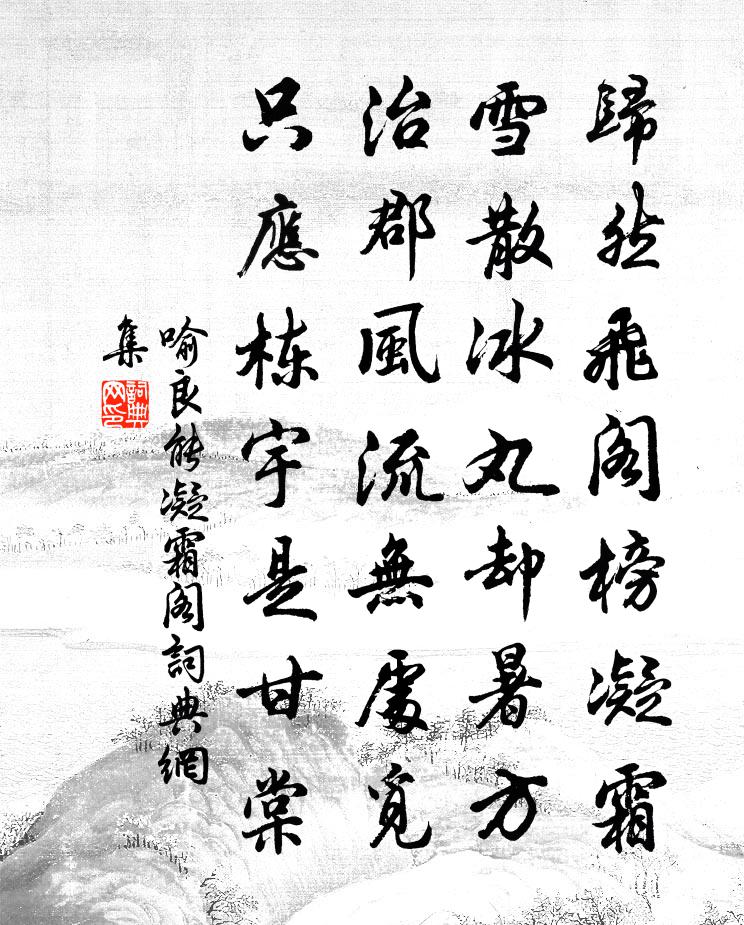 歸然飛閣榜凝霜
雪散冰丸却暑方
治郡風流無處覓
只應棟宇是甘棠
喻良能凝霜閣詞典網
集
詞典
网印